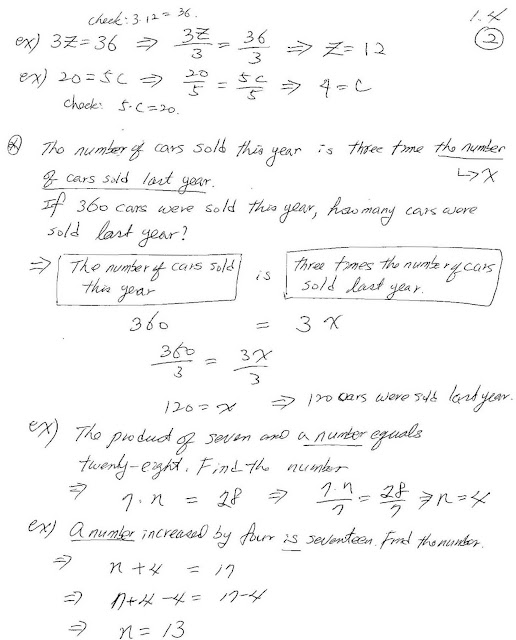 check: 3·12 = 36.
1.4
②
ex) 3z = 36 ⇒ 3z/3 = 36/3 ⇒ z = 12
ex) 20 = 5c ⇒ 20/5 = 5c/5 ⇒ 4 = c
check: 5·c = 20.
The number of cars sold this year is three time the number
of cars sold last year. ↳ x
If 360 cars were sold this year, how many cars were
sold last year?
⇒ The number of cars sold this year is three times the number of cars sold last year.
360 = 3x
360/3 = 3x/3
120 = x ⇒ 120 cars were sold last year.
ex) The product of seven and a number equals
twenty-eight. Find the number
⇒ 7·n = 28 ⇒ 7·n/7 = 28/7 ⇒ n = 4
ex) A number increased by four is seventeen. Find the number.
⇒ n + 4 = 17
⇒ n + 4 - 4 = 17 - 4
⇒ n = 13